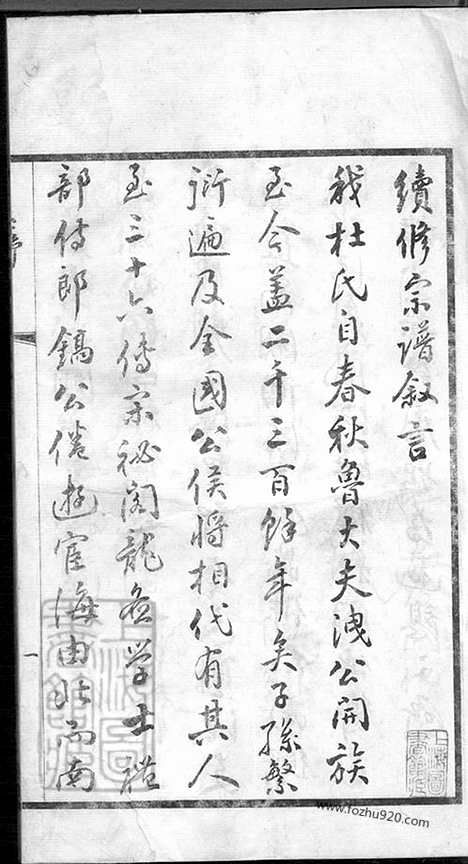 續修宗譜叙言
我杜氏自春秋魯大夫洩公開族
至今蓋二千三百餘年矣子孫繁
衍遍及全國公侯將相代有其人
至三十六傳宋祕閣龍圖學士禮
部侍郎鎬公倦遊宦海由北而南
一
上海圖書館藏
www.fozhu920.com